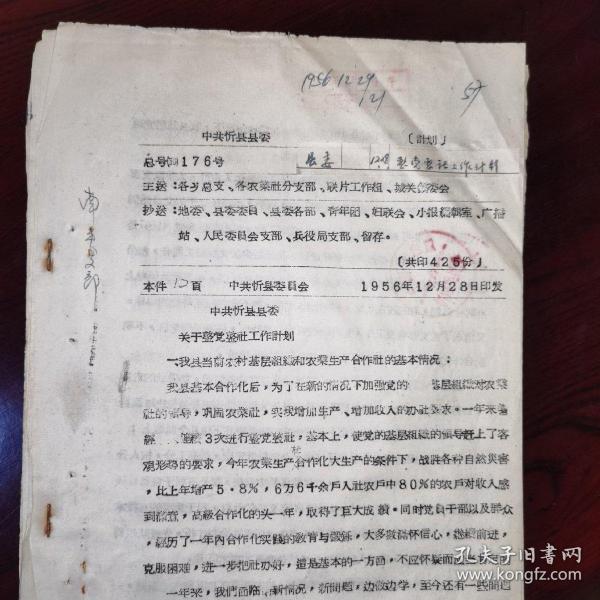 1956 12 29
/21
57
中共忻县县委
〔計划〕
总号 176号
县委
12月整党整社工作計划
主送：各乡总支、各农業社分支部、联片工作組、城关党委会
抄送：地委、县委委員、县委各部、青年团、妇联会、小报編輯室、广播
站、人民委員会支部、兵役局支部、留存。
〔共印425份〕
本件12頁 中共忻县委員会 1956年12月28日印发
中共忻县县委
关于整党整社工作計划
一、我县当前农村基层組織和农業生产合作社的基本情况：
我县基本合作化后，为了在新的情况下加强党的 基层組織对农業
社的領导，巩固农業社，实现增加生产、增加收入的办社要求。一年来
經 3次进行整党整社，基本上，使党的基层組織的領导赶上了客
观形势的要求，今年农業生产合作化大生产的条件下，战胜各种自然災害
社
，比上年增产5·8%，6万6千余戶入社农戶中80%的农戶对收入感
到滿意，高級合作化的头一年，取得了巨大成績。同时党員干部以及群众
，經历了一年內合作化实践的教育与鍛炼，大多数滿怀信心，继續前进，
克服困难，进一步把社办好，這是基本的一方面，不应怀疑
一年来，我們面臨 新情况，新問題，边做边学，至今还有一些問題
南 支部
孔夫子旧书网
www.kongfz.com